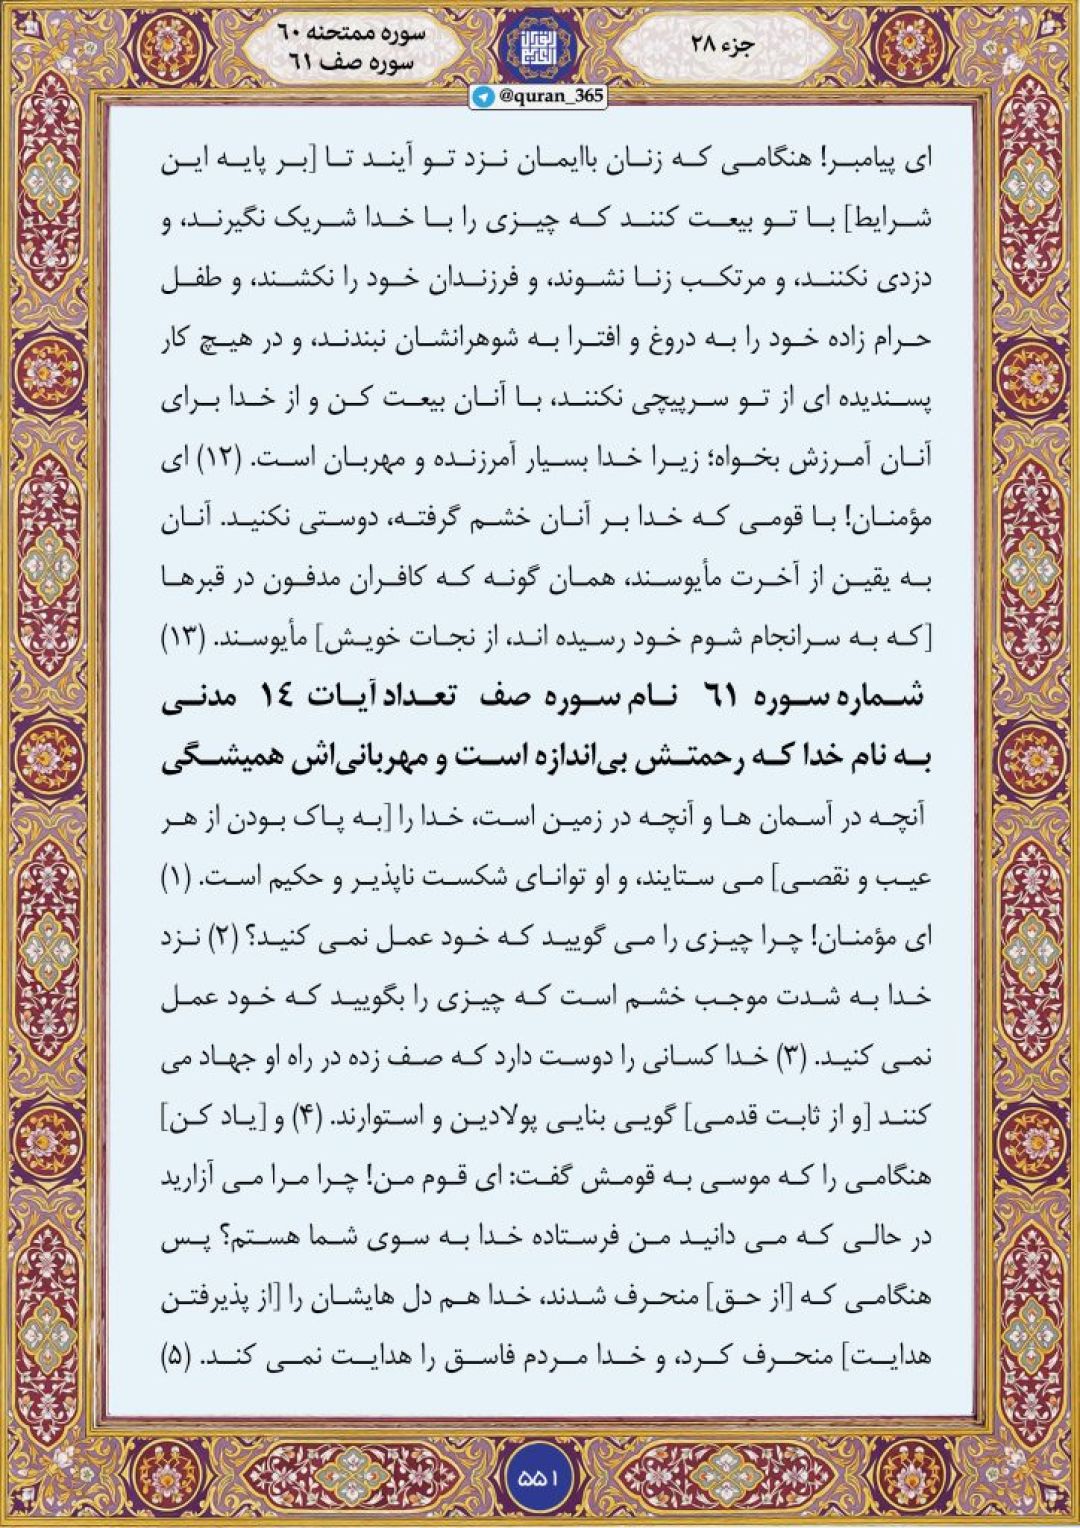 جزء ۲۸
سوره ممتحنه ۶۰
سوره صف ۶۱
@quran_365
ای پیامبر! هنگامی که زنان باایمان نزد تو آیند تا [بر پایه این
شرایط] با تو بیعت کنند که چیزی را با خدا شریک نگیرند، و
دزدی نکنند، و مرتکب زنا نشوند، و فرزندان خود را نکشند، و طفل
حرام زاده خود را به دروغ و افترا به شوهرانشان نبندند، و در هیچ کار
پسندیده ای از تو سرپیچی نکنند، با آنان بیعت کن و از خدا برای
آنان آمرزش بخواه؛ زیرا خدا بسیار آمرزنده و مهربان است. (۱۲) ای
مؤمنان! با قومی که خدا بر آنان خشم گرفته، دوستی نکنید. آنان
به یقین از آخرت مأیوسند، همان گونه که کافران مدفون در قبرها
[که به سرانجام شوم خود رسیده اند، از نجات خویش] مأیوسند. (۱۳)
شماره سوره ۶۱ نام سوره صف تعداد آیات ۱٤ مدنی
به نام خدا که رحمتش بی‌اندازه است و مهربانی‌اش همیشگی
آنچه در آسمان ها و آنچه در زمین است، خدا را [به پاک بودن از هر
عیب و نقصی] می ستایند، و او توانای شکست ناپذیر و حکیم است. (۱)
ای مؤمنان! چرا چیزی را می گویید که خود عمل نمی کنید؟ (۲) نزد
خدا به شدت موجب خشم است که چیزی را بگویید که خود عمل
نمی کنید. (۳) خدا کسانی را دوست دارد که صف زده در راه او جهاد می
کنند [و از ثابت قدمی] گویی بنایی پولادین و استوارند. (۴) و [یاد کن]
هنگامی را که موسی به قومش گفت: ای قوم من! چرا مرا می آزارید
در حالی که می دانید من فرستاده خدا به سوی شما هستم؟ پس
هنگامی که [از حق] منحرف شدند، خدا هم دل هایشان را [از پذیرفتن
هدایت] منحرف کرد، و خدا مردم فاسق را هدایت نمی کند. (۵)
۵۵۱